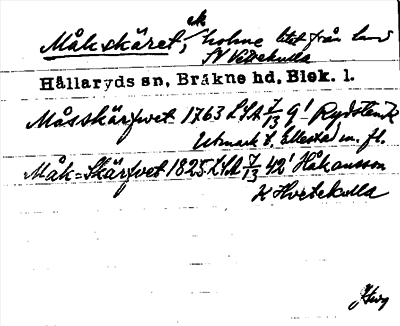 Måkskäret, sk holme litet från land
SV Vettekulla
Hällaryds sn, Bräkne hd, Blek. l.
Måsskärfvet 1763 LSA 7/13 9' Rydstenk
Utmark t. Ellestad m. fl.
Måk=Skärfvet 1825 LSA 7/13 42' Håkansson
K Hvetekulla